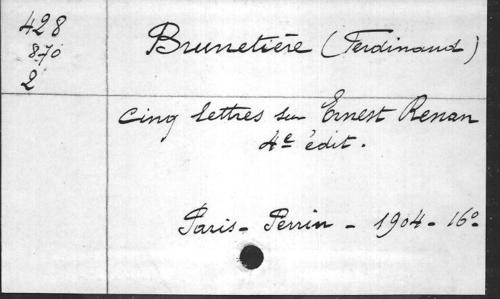 428
870
2
Brunetière (Ferdinand)
Cinq lettres sur Ernest Renan
4e édit.
Paris - Perrin - 1904 - 16°